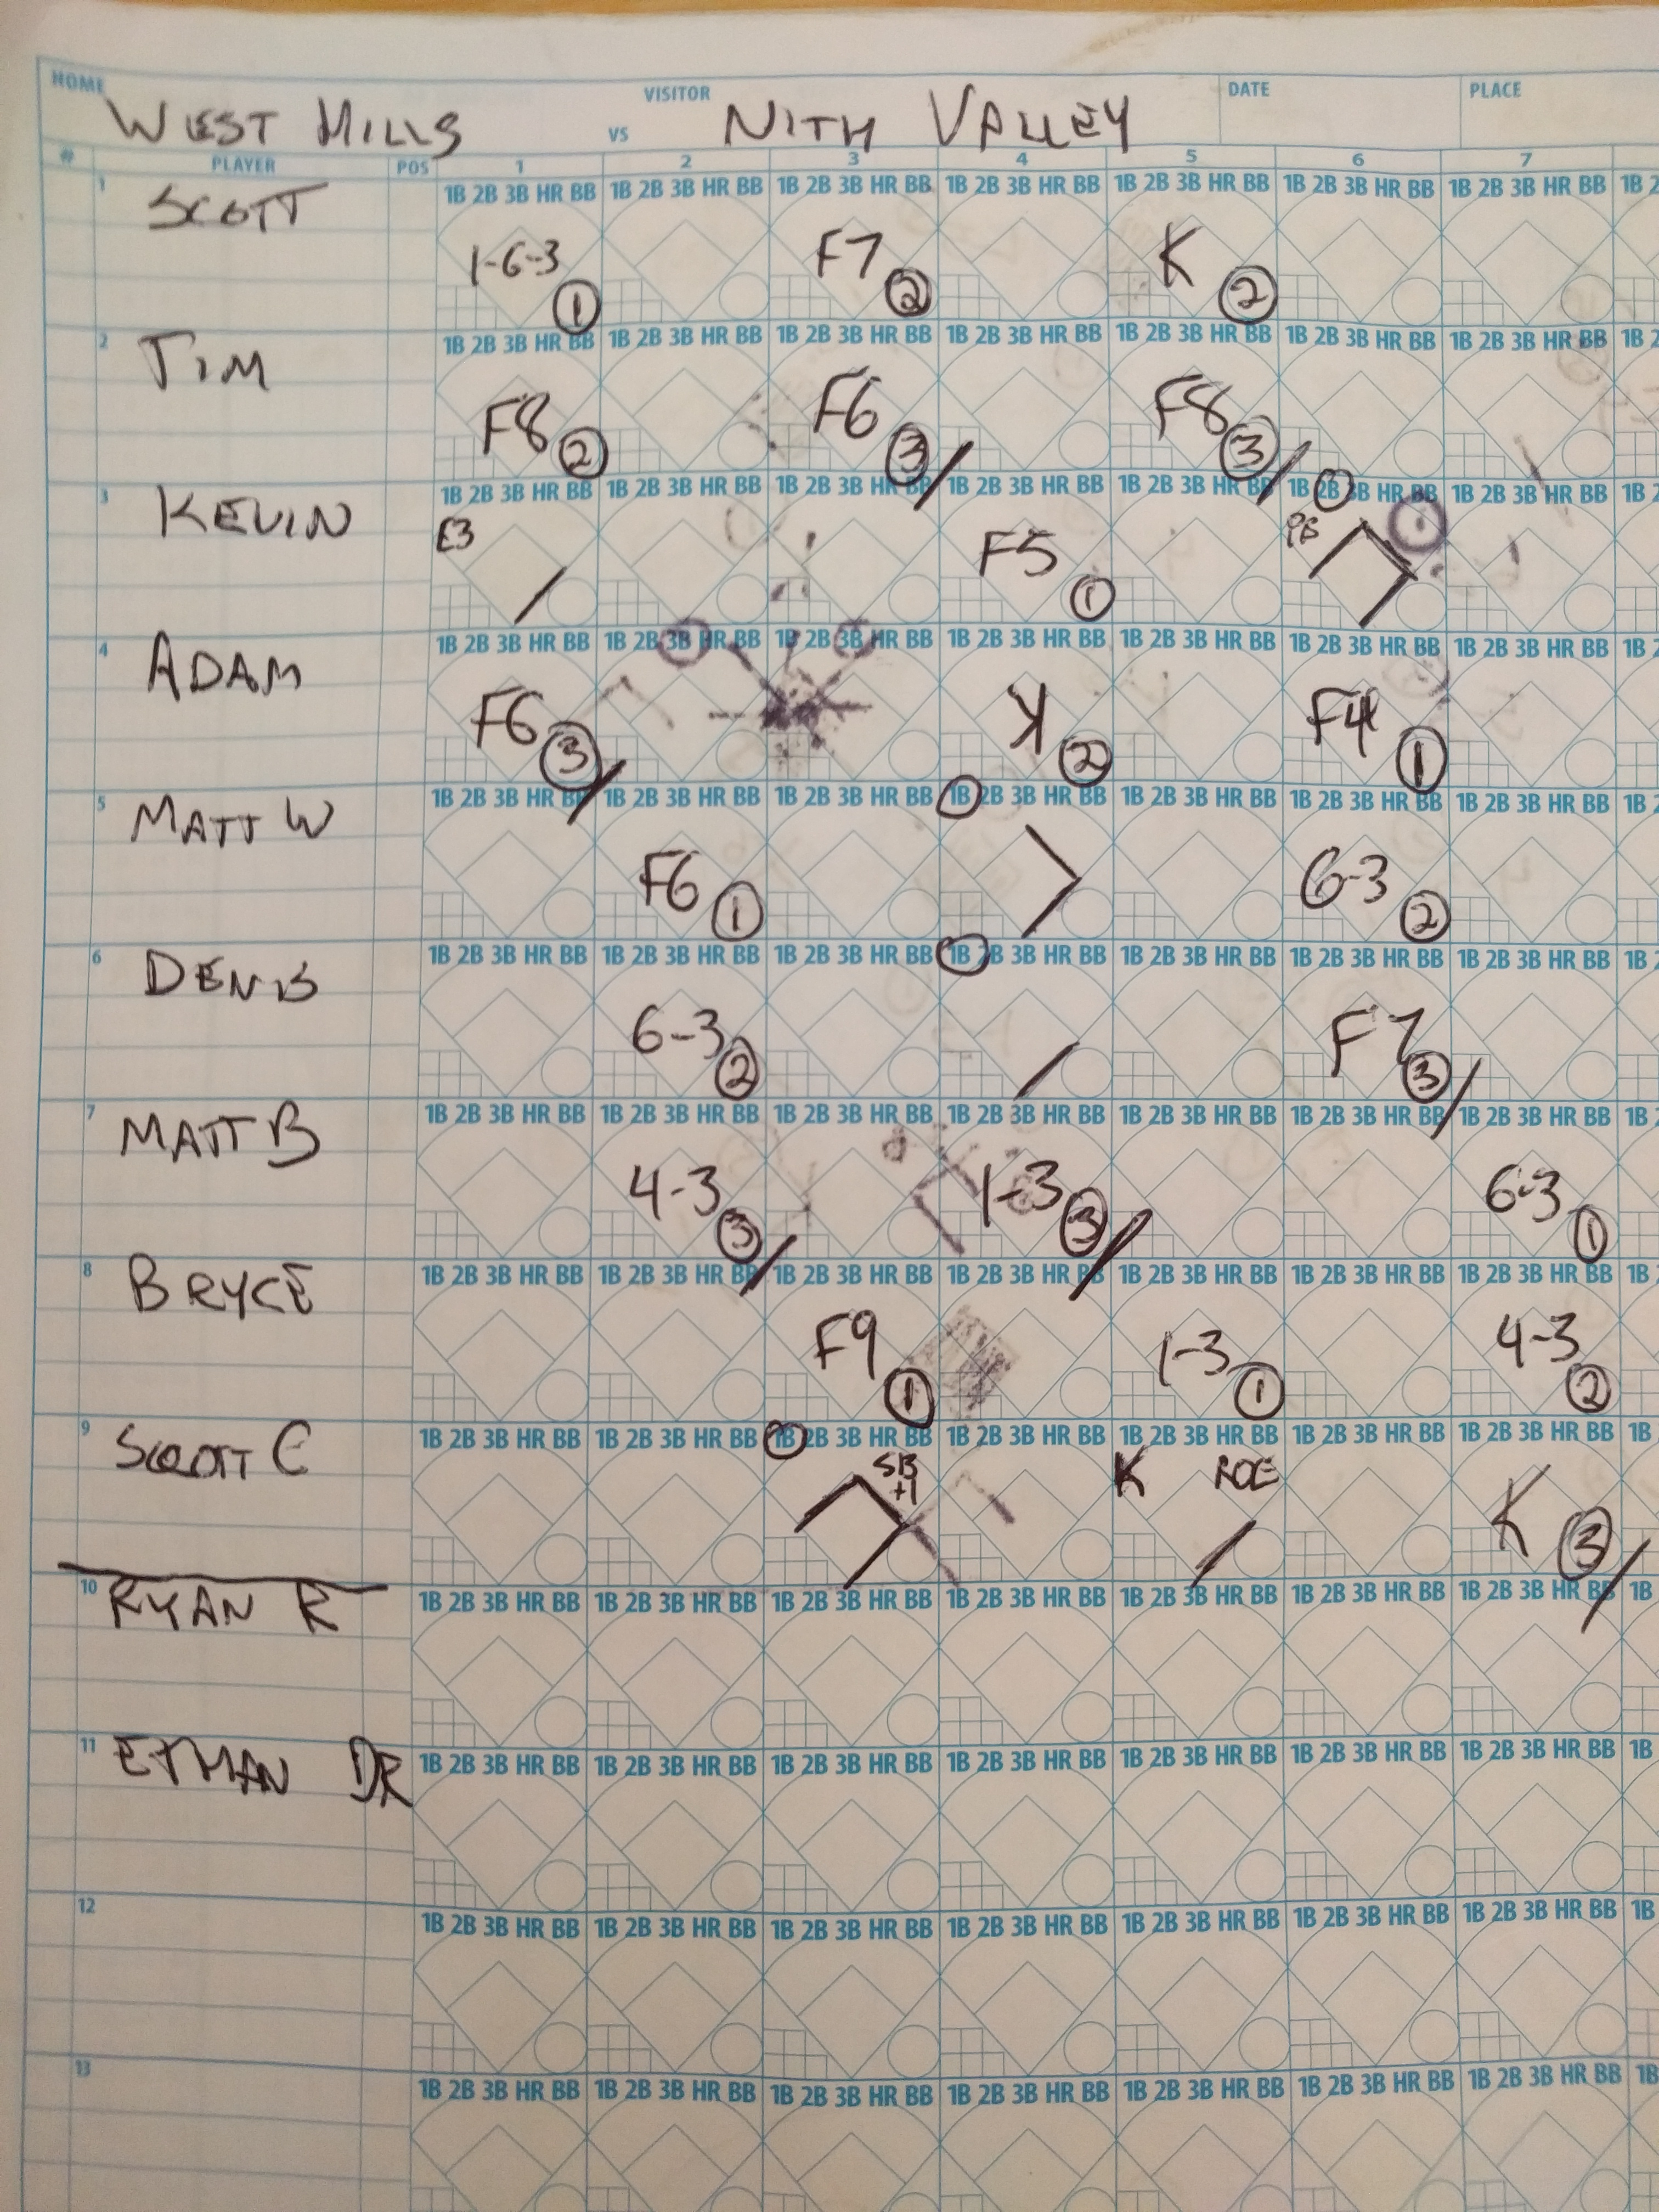 HOME VISITOR DATE PLACE
WEST HILLS VS NITH VALLEY
# PLAYER POS 1 2 3 4 5 6 7
1 SCOTT 1B 2B 3B HR BB 1B 2B 3B HR BB 1B 2B 3B HR BB 1B 2B 3B HR BB 1B 2B 3B HR BB 1B 2B 3B HR BB 1B 2B 3B HR BB 1B 2
1-6-3 1 F7 2 K 2
2 TIM 1B 2B 3B HR BB 1B 2B 3B HR BB 1B 2B 3B HR BB 1B 2B 3B HR BB 1B 2B 3B HR BB 1B 2B 3B HR BB 1B 2B 3B HR BB 1B 2
F8 2 F6 3 F8 3
3 KEVIN 1B 2B 3B HR BB 1B 2B 3B HR BB 1B 2B 3B HR BB 1B 2B 3B HR BB 1B 2B 3B HR BB 1B 2B 3B HR BB 1B 2B 3B HR BB 1B 2
E3 F5 1 PB
4 ADAM 1B 2B 3B HR BB 1B 2B 3B HR BB 1B 2B 3B HR BB 1B 2B 3B HR BB 1B 2B 3B HR BB 1B 2B 3B HR BB 1B 2B 3B HR BB 1B 2
F6 3 K 2 F4 1
5 MATT W 1B 2B 3B HR BB 1B 2B 3B HR BB 1B 2B 3B HR BB 1B 2B 3B HR BB 1B 2B 3B HR BB 1B 2B 3B HR BB 1B 2B 3B HR BB 1B 2
F6 1 6-3 2
6 DENIS 1B 2B 3B HR BB 1B 2B 3B HR BB 1B 2B 3B HR BB 1B 2B 3B HR BB 1B 2B 3B HR BB 1B 2B 3B HR BB 1B 2B 3B HR BB 1B 2
6-3 2 F7 3
7 MATT B 1B 2B 3B HR BB 1B 2B 3B HR BB 1B 2B 3B HR BB 1B 2B 3B HR BB 1B 2B 3B HR BB 1B 2B 3B HR BB 1B 2B 3B HR BB 1B 2
4-3 3 1-3 3 6-3 1
8 BRYCE 1B 2B 3B HR BB 1B 2B 3B HR BB 1B 2B 3B HR BB 1B 2B 3B HR BB 1B 2B 3B HR BB 1B 2B 3B HR BB 1B 2B 3B HR BB 1B
F9 1 1-3 1 4-3 2
9 SCOTT C 1B 2B 3B HR BB 1B 2B 3B HR BB 1B 2B 3B HR BB 1B 2B 3B HR BB 1B 2B 3B HR BB 1B 2B 3B HR BB 1B 2B 3B HR BB 1B
SB +1 K ROE K 3
10 RYAN R 1B 2B 3B HR BB 1B 2B 3B HR BB 1B 2B 3B HR BB 1B 2B 3B HR BB 1B 2B 3B HR BB 1B 2B 3B HR BB 1B 2B 3B HR BB 1B
11 ETHAN DR 1B 2B 3B HR BB 1B 2B 3B HR BB 1B 2B 3B HR BB 1B 2B 3B HR BB 1B 2B 3B HR BB 1B 2B 3B HR BB 1B 2B 3B HR BB 1B
12 1B 2B 3B HR BB 1B 2B 3B HR BB 1B 2B 3B HR BB 1B 2B 3B HR BB 1B 2B 3B HR BB 1B 2B 3B HR BB 1B 2B 3B HR BB 1B
13 1B 2B 3B HR BB 1B 2B 3B HR BB 1B 2B 3B HR BB 1B 2B 3B HR BB 1B 2B 3B HR BB 1B 2B 3B HR BB 1B 2B 3B HR BB 1B